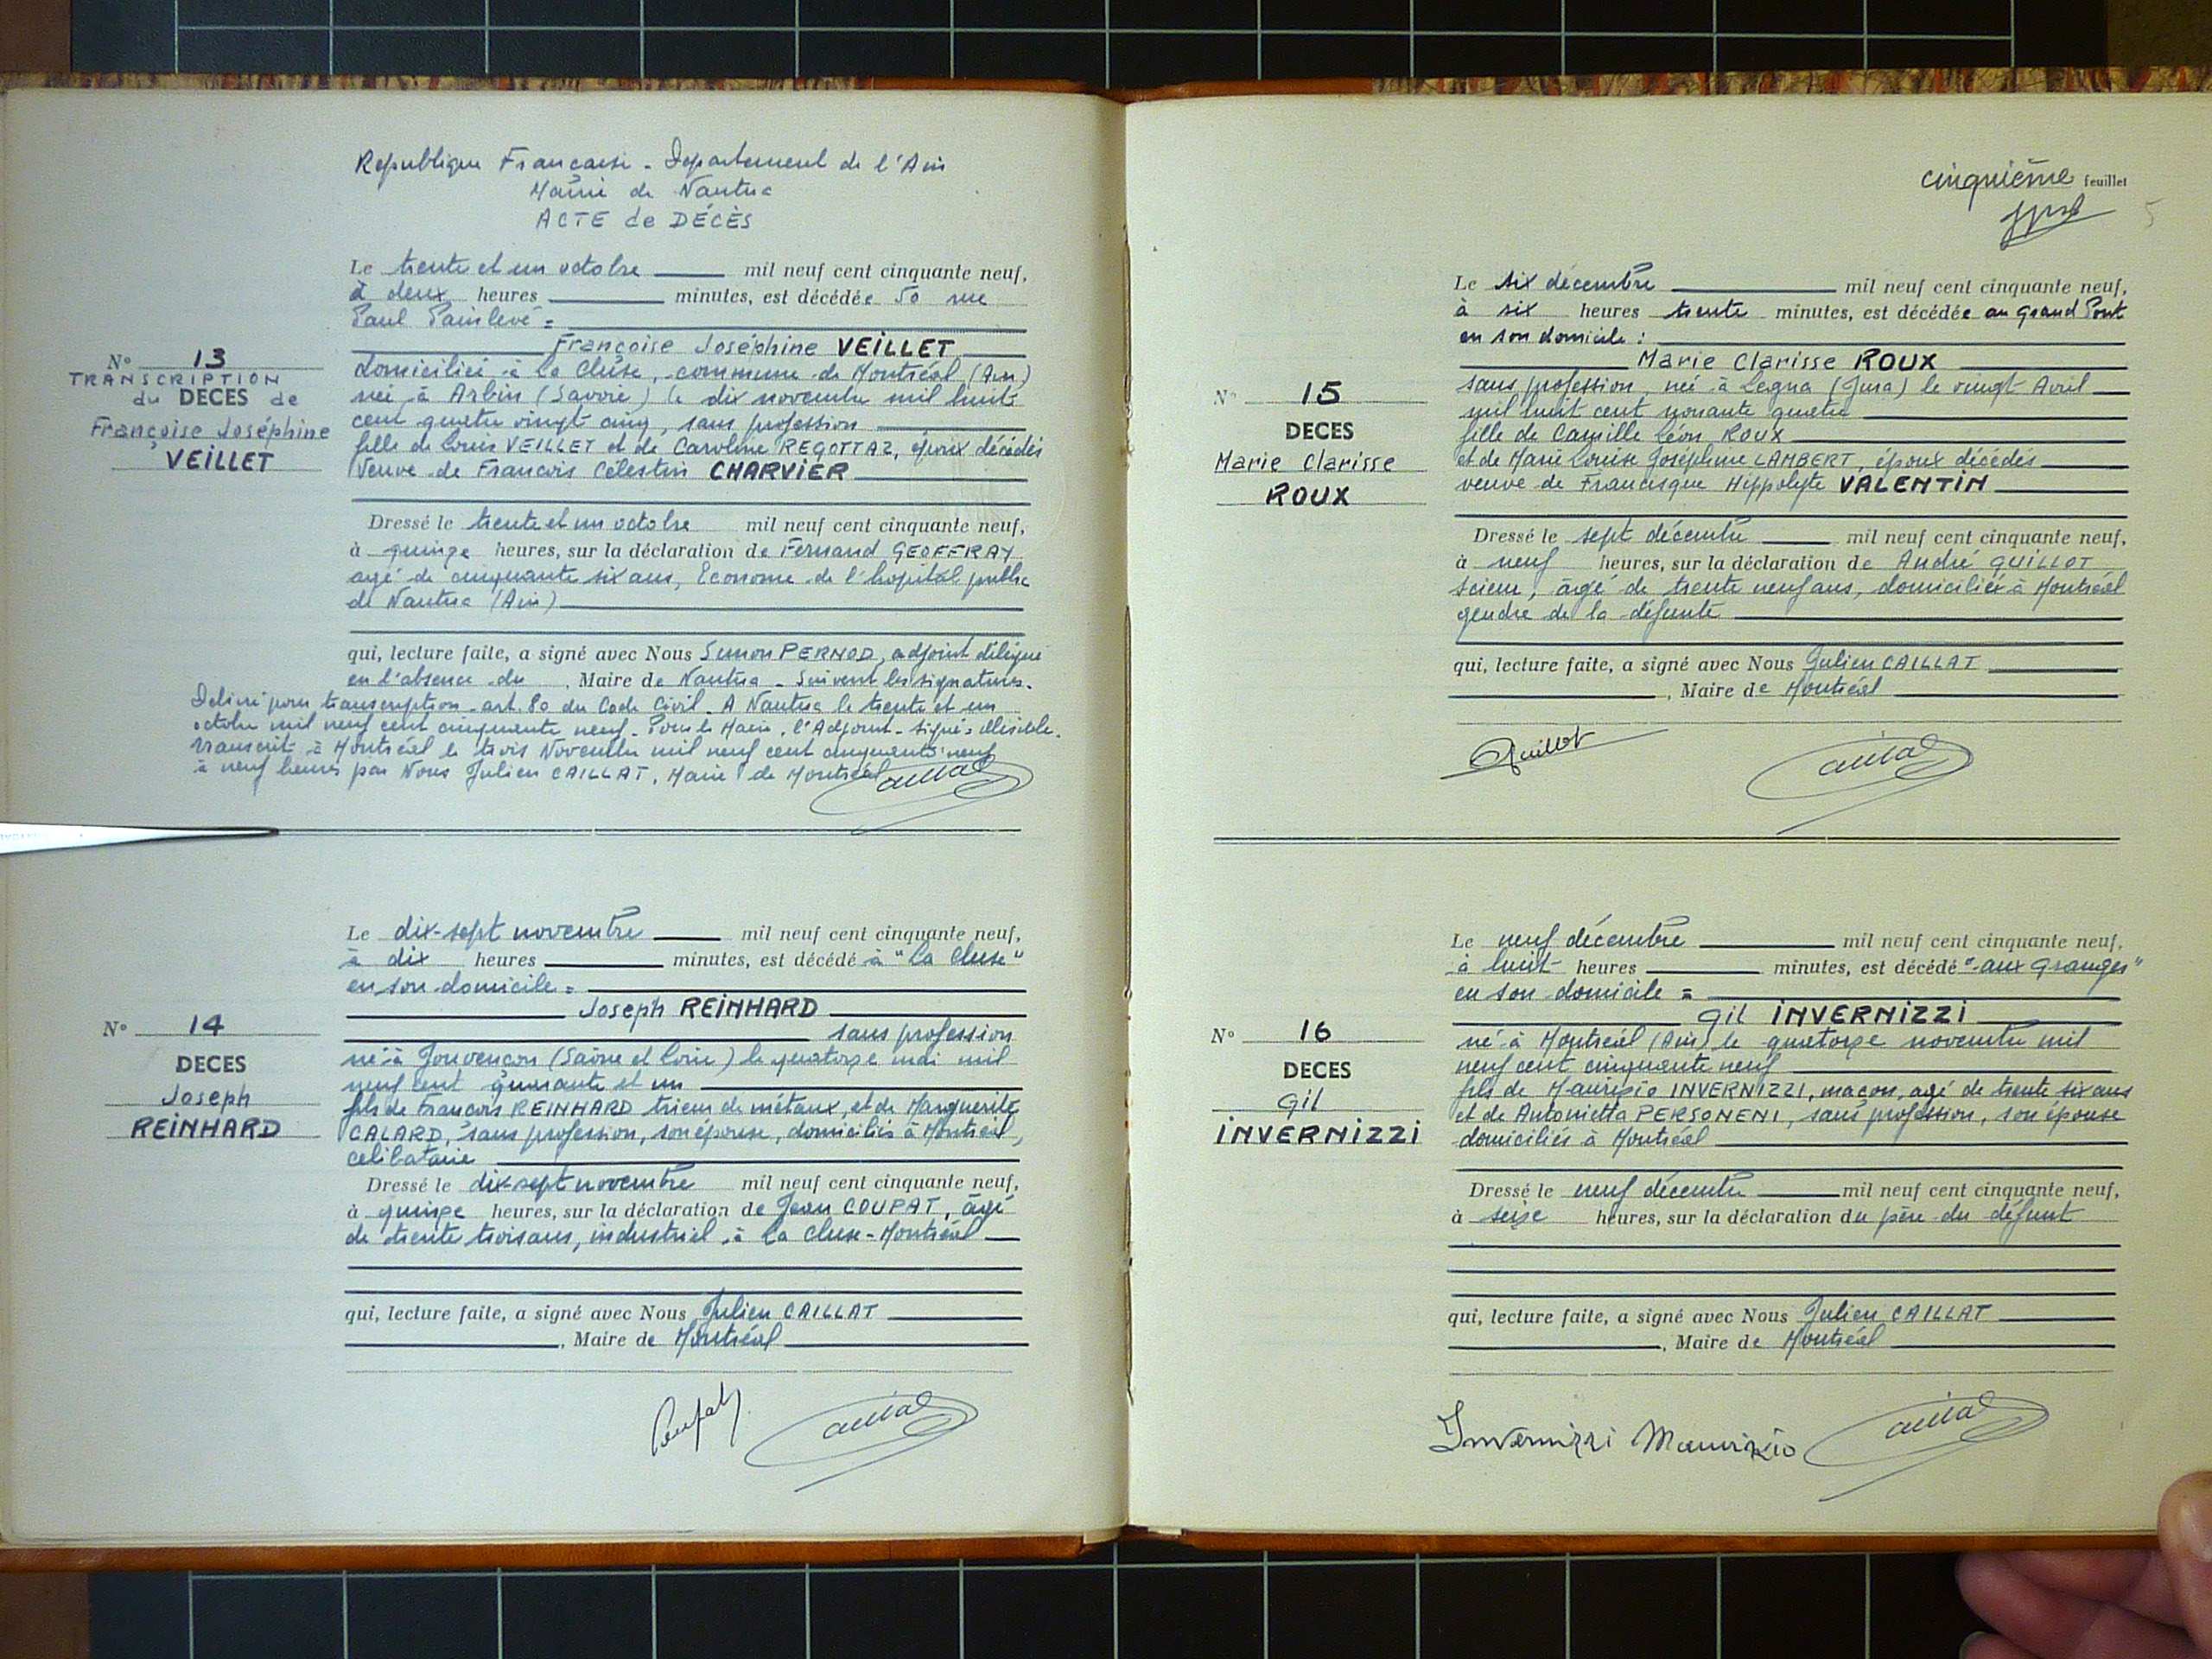 Republique Francaise - Departement de l'Ain
Mairie de Nantua
ACTE de DÉCÈS
Le trente et un octobre mil neuf cent cinquante neuf,
à deux heures minutes, est décédée 50 rue
Paul Painlevé =
Françoise Joséphine VEILLET
N° 13
TRANSCRIPTION
du DECES de
Françoise Joséphine
VEILLET
domiciliée à la Cluse, commune de Montréal (Ain)
née à Arbin (Savoie) le dix novembre mil huit
cent quatre vingt cinq, sans profession
fille de Louis VEILLET et de Caroline REGOTTAZ, époux décédés
Veuve de Francois Célestin CHARVIER
Dressé le trente et un octobre mil neuf cent cinquante neuf,
à quinze heures, sur la déclaration de Fernand GEOFFRAY
agé de cinquante six ans, Econome de l'hopital public
de Nantua (Ain)
qui, lecture faite, a signé avec Nous Simon PERNOD, adjoint délégué
en l'absence du , Maire de Nantua - Suivent les signatures.
Délivré pour transcription - art. 80 du Code Civil. A Nantua le trente et un
octobre mil neuf cent cinquante neuf - Pour le Maire, l'Adjoint - signé = illisible.
Transcrit à Montréal le trois Novembre mil neuf cent cinquante neuf
à neuf heures par Nous Julien CAILLAT, Maire de Montréal
Le dix-sept novembre mil neuf cent cinquante neuf,
à dix heures minutes, est décédé à "La Cluse"
en son domicile =
Joseph REINHARD
N° 14
DECES
Joseph
REINHARD
sans profession
né à Jouvençon (Saône et Loire) le quatorze mai mil
neuf cent quarante et un
fils de Francois REINHARD trieur de métaux, et de Marguerite
CALARD, sans profession, son épouse, domiciliés à Montréal,
celibataire
Dressé le dix-sept novembre mil neuf cent cinquante neuf,
à quinze heures, sur la déclaration de Jean COUPAT, âgé
de trente trois ans, industriel, à La Cluse-Montréal
qui, lecture faite, a signé avec Nous Julien CAILLAT
, Maire de Montréal
cinquième feuillet
5
Le six décembre mil neuf cent cinquante neuf,
à six heures trente minutes, est décédée au Grand Pont
en son domicile :
Marie Clarisse ROUX
N° 15
DECES
Marie Clarisse
ROUX
sans profession, née à Legna (Jura) le vingt Avril
mil huit cent nonante quatre
fille de Camille Léon ROUX
et de Marie Louise Joséphine LAMBERT, époux décédés
veuve de Francisque Hippolyte VALENTIN
Dressé le sept décembre mil neuf cent cinquante neuf,
à neuf heures, sur la déclaration de André GUILLOT
scieur, âgé de trente neuf ans, domicilié à Montréal
gendre de la défunte
qui, lecture faite, a signé avec Nous Julien CAILLAT
, Maire de Montréal
Guillot
Le neuf décembre mil neuf cent cinquante neuf,
à huit heures minutes, est décédé "aux Granges"
en son domicile =
Gil INVERNIZZI
N° 16
DECES
Gil
INVERNIZZI
né à Montréal (Ain) le quatorze novembre mil
neuf cent cinquante neuf
fils de Maurizio INVERNIZZI, macon, agé de trente six ans
et de Antonietta PERSONENI, sans profession, son épouse
domiciliés à Montréal
Dressé le neuf décembre mil neuf cent cinquante neuf,
à seize heures, sur la déclaration du père du défunt
qui, lecture faite, a signé avec Nous Julien CAILLAT
, Maire de Montréal
Invernizzi Maurizio